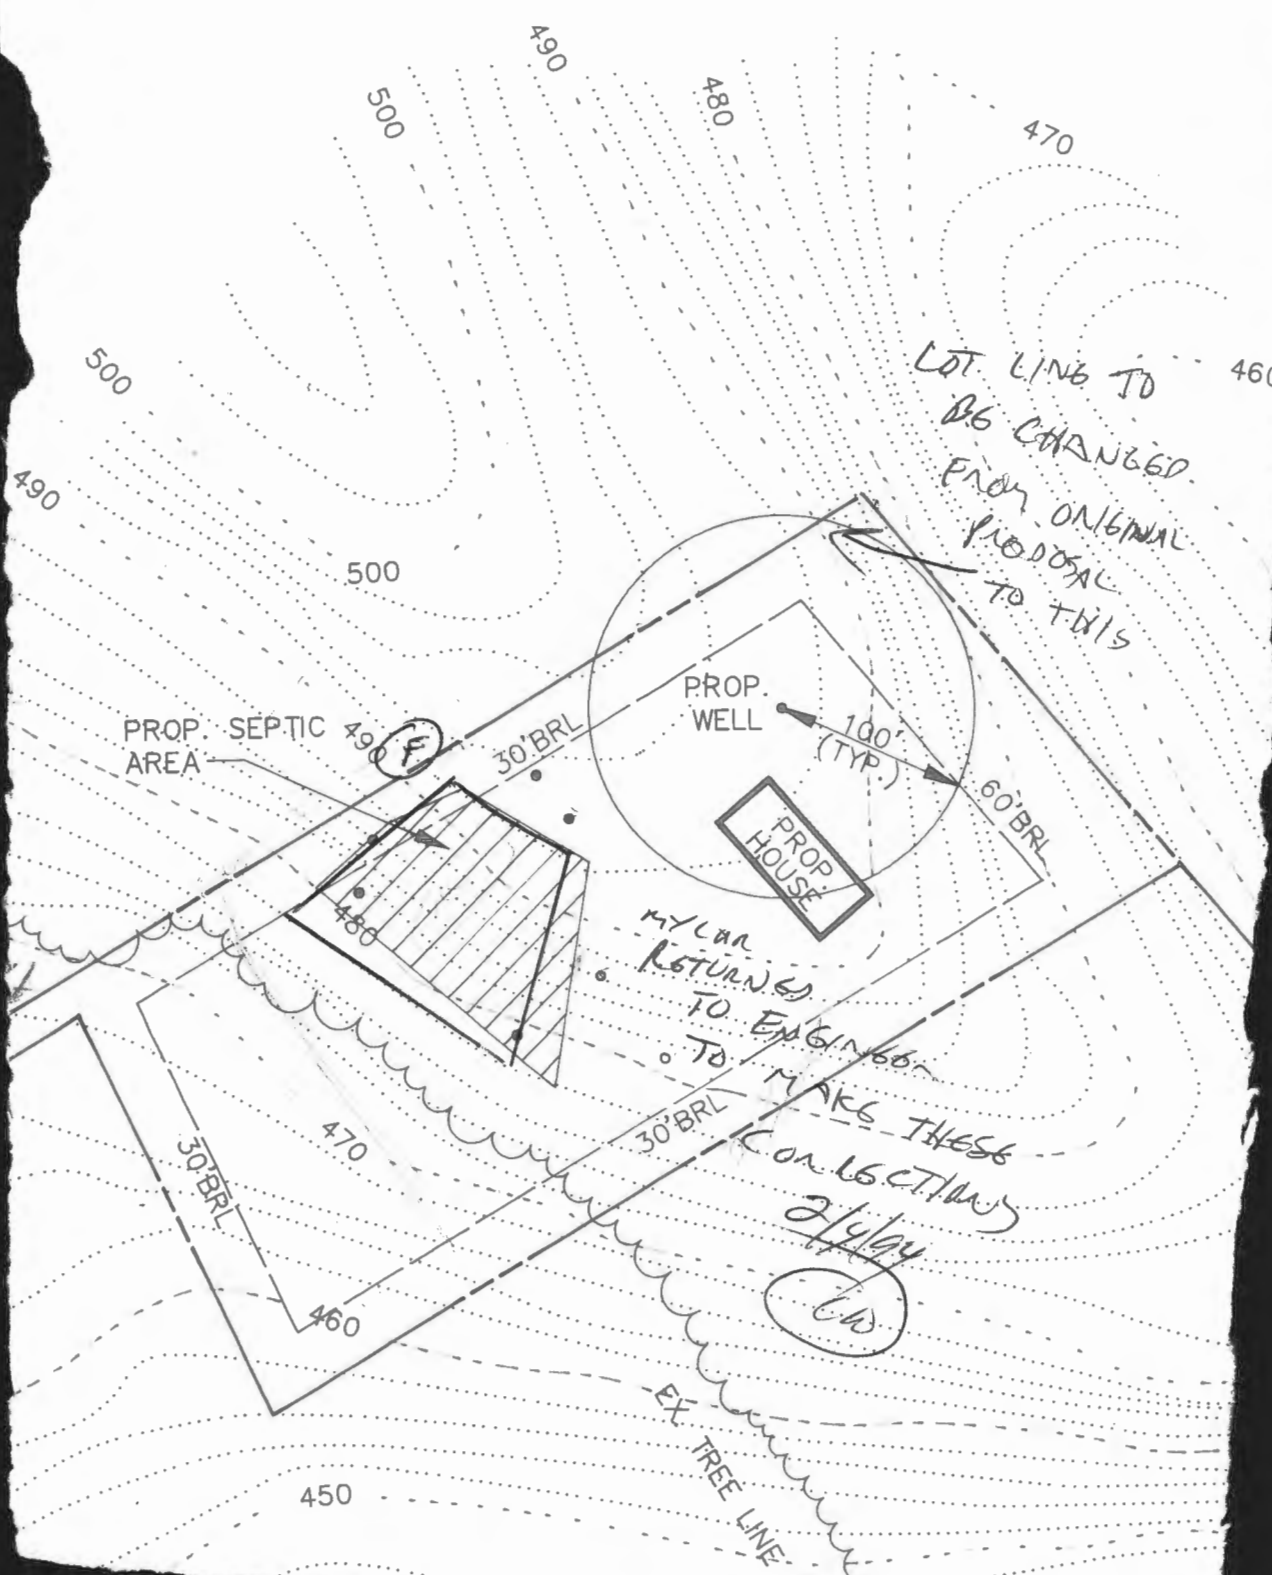 490
500
480
470
500
460
LOT LINE TO
BE CHANGED
FROM ORIGINAL
PROPOSAL
TO THIS
490
500
PROP. SEPTIC
AREA
490
F
30'BRL
PROP.
WELL
100'
(TYP.)
60'BRL
PROP
HOUSE
480
MYLAR
RETURNED
TO ENGINEER
TO MAKE THESE
CORRECTIONS
2/4/94
CW
30'BRL
30'BRL
470
460
EX. TREE LINE
450